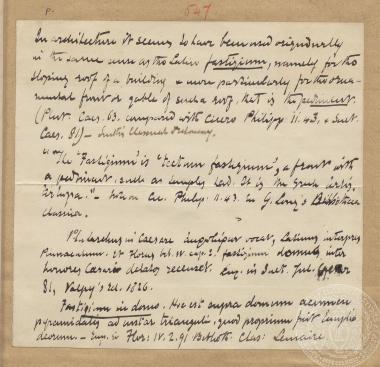 P.
547
In architecture it seems to have been used originally
in the same sense as the Latin fastigium, namely for the
sloping roof of a building & more particularly for the orna-
mental front or gable of such a roof that is the pediment.
(Plut. Caes. 63. compared with Cicero Philipp. 11.43, & Suet.
Caes. 81) — Smith's Classical Dictionary.
The "Fastigium" is "tectum fastigium", a front with
a pediment, such as temples had. It is the Greek
" — Note on Cic. Philip: 11.43. in G. Long's Bibliotheca
classica.
Plutarchus in Caesare vocat, Latinus interpres
Pinnaculum. Et Florus lib. IV cap. 2. fastigium domus inter
honores Caesari delatos recenset. in Suet. Jul.
81, Valpy's Ed. 1826.
Fastigium in domo. Hoc est supra domum acumen
pyramidatis ad instar trianguli, quod proprium fuit templis
deorum — in Flor: IV. 2. 91 Biblioth. Clas: Lemaire